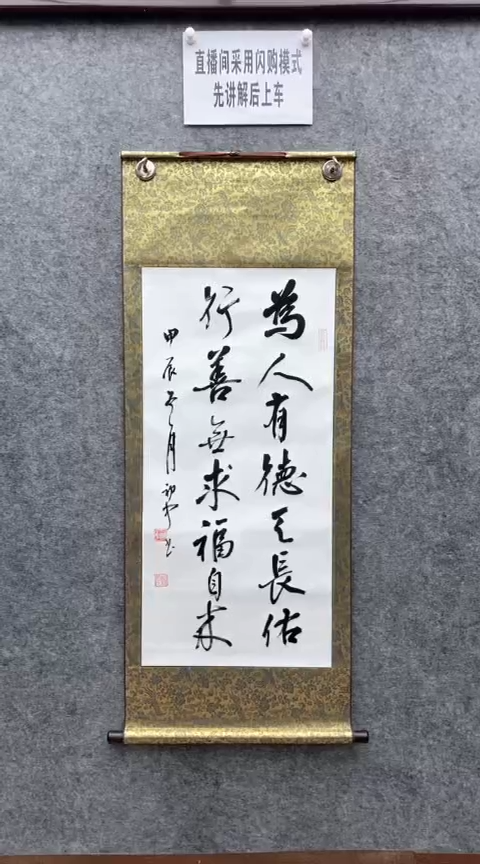 直播间采用闪购模式
先讲解后上车
為人有德天長佑
行善無求福自來
甲辰
月